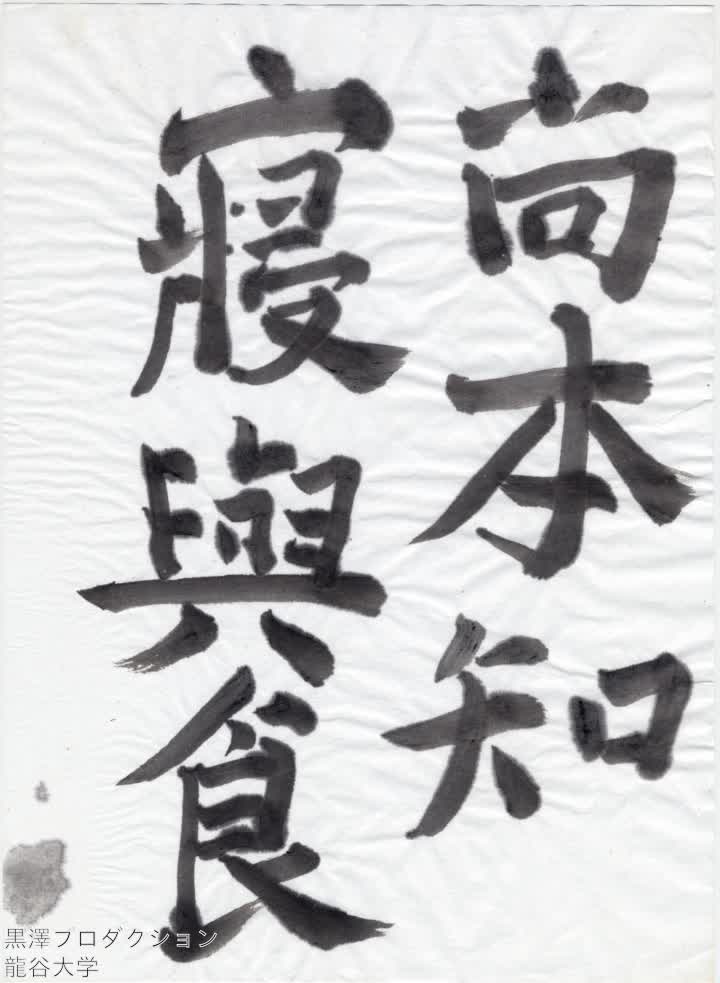 尚本知
寝興食
黒澤プロダクション
龍谷大学